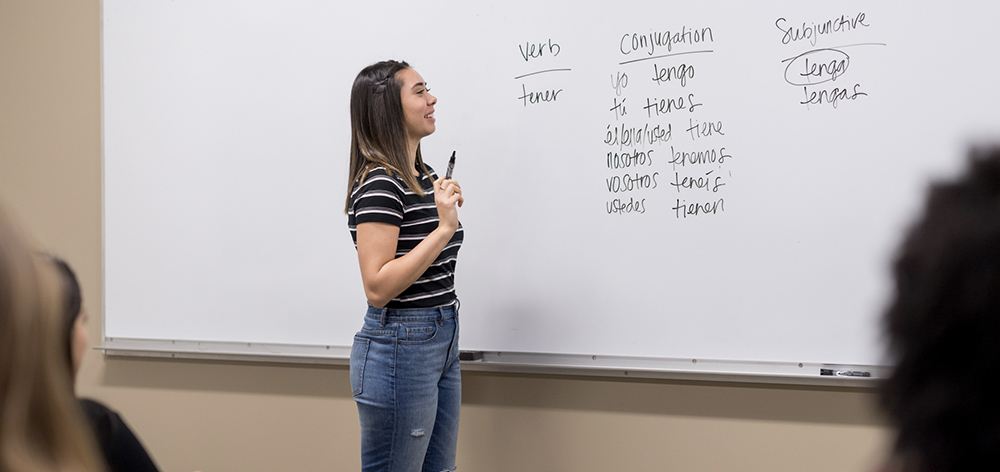 Verb
tener
Conjugation
yo tengo
tú tienes
él/ella/usted tiene
nosotros tenemos
vosotros teneís
ustedes tienen
Subjunctive
tenga
tengas